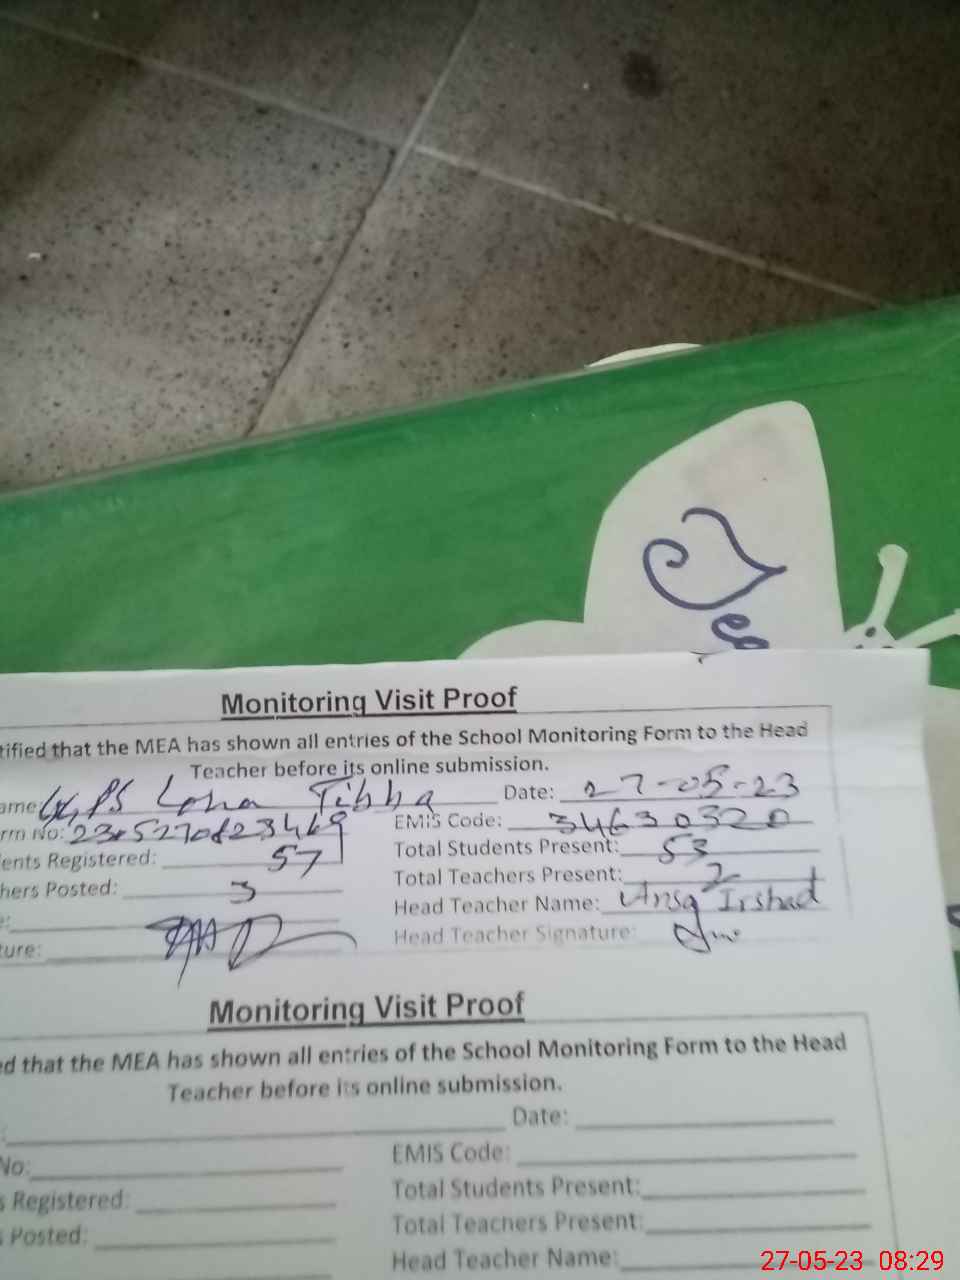 Tea
Monitoring Visit Proof
tified that the MEA has shown all entries of the School Monitoring Form to the Head
Teacher before its online submission.
ame: GGPS Loha Tibba Date: 27-05-23
rm No: EMIS Code: 34630320
ents Registered: 57 Total Students Present: 53
hers Posted: 3 Total Teachers Present: 2
e: Head Teacher Name: Irshad
ture: Head Teacher Signature:
Monitoring Visit Proof
ed that the MEA has shown all entries of the School Monitoring Form to the Head
Teacher before its online submission.
: Date:
No: EMIS Code:
s Registered: Total Students Present:
s Posted: Total Teachers Present:
Head Teacher Name:
27-05-23 08:29